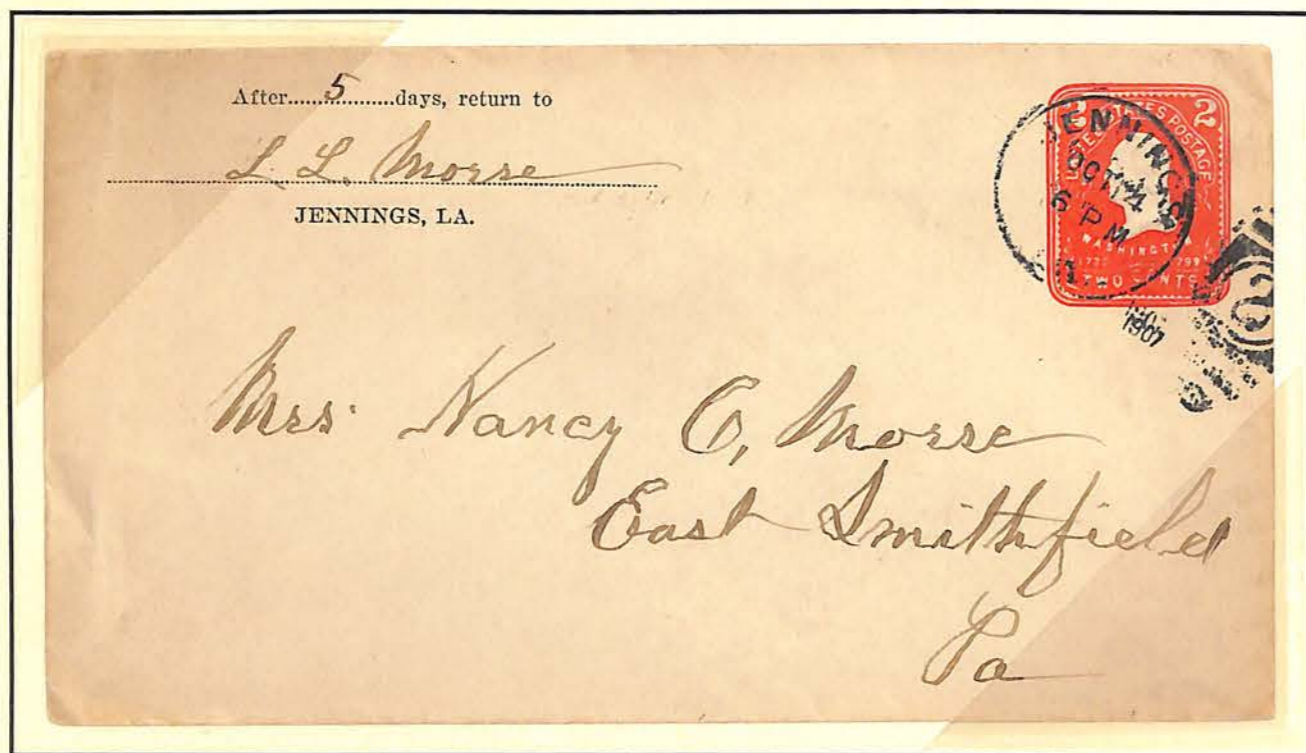 After......5..........days, return to
L. L. Morse
JENNINGS, LA.
2 2
STATES POSTAGE
WASHINGTON
TWO CENTS
JENNINGS
OCT
6 PM
1907
2
Mrs. Nancy C, Morse
East Smithfield
Pa